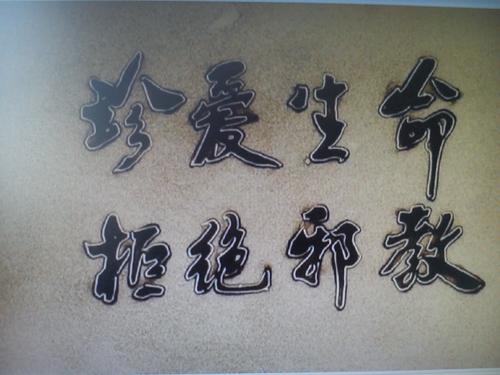 珍爱生命
拒绝邪教